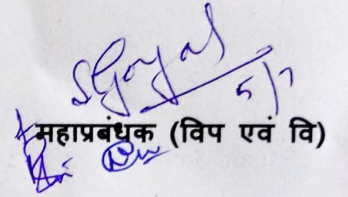 SGoyal
5/7
महाप्रबंधक (विप एवं वि)